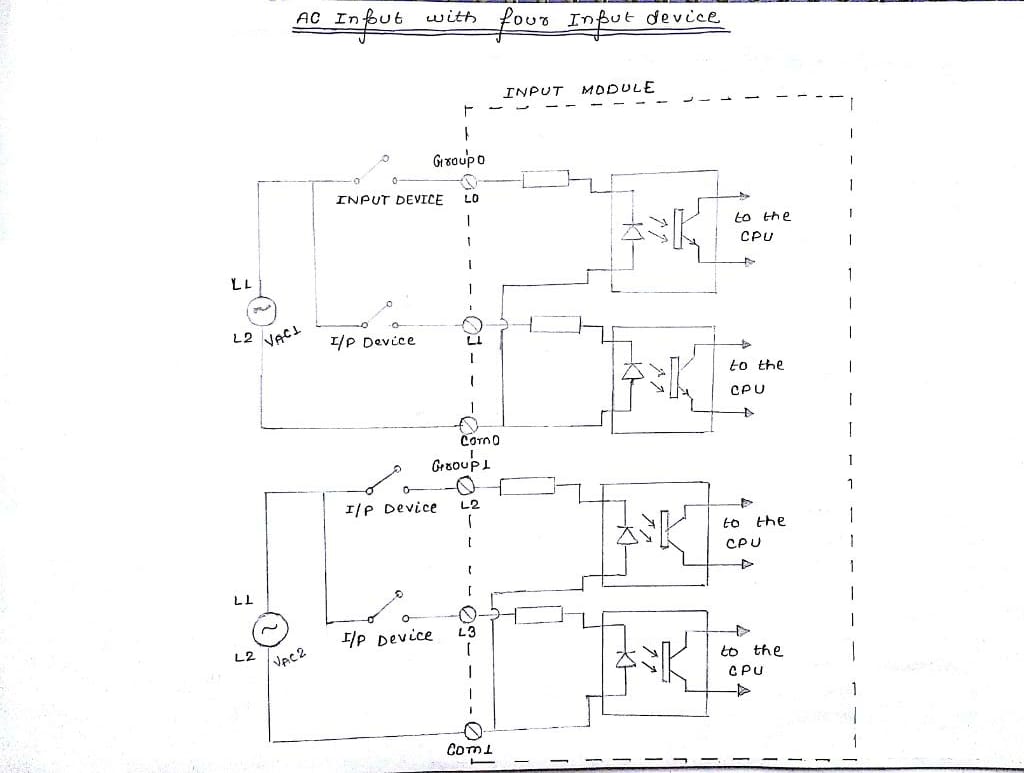 AC Input with four Input device
INPUT MODULE
Group0
INPUT DEVICE
L0
to the
CPU
L1
L2
VAC1
I/P Device
L1
to the
CPU
Com0
Group1
I/P Device
L2
to the
CPU
L1
L2
VAC2
I/P Device
L3
to the
CPU
Com1